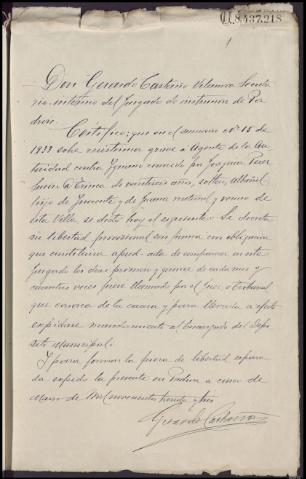 1.8437.218
Don Gerardo Castaño Vilanova Secreta-
rio interino del Juzgado de instrucción de Pa-
dron.
Certifico: que en el sumario nº 15 de
1933 sobre resistencia grave a Agente de la Au-
toridad contra Ignacio conocido por Joaquin
de veintiseis años, soltero, albañil
hijo de y de natural y vecino de
esta Villa se dictó hoy el siguiente: Se decreta
la libertad provisional sin fianza con obligación
que constituirá apud-acta de comparecer en este
Juzgado los dias primero y quince de cada mes y
cuantas veces fuere llamado por el Juez o Tribunal
que conozca de la causa y para llevarla a efecto
expidase mandamiento al Encargado del Depó-
sito Municipal.
Y para formar la pieza de libertad
expido la presente en Padron a cinco de
Mayo de mil novecientos treinta y tres
Gerardo Castaño